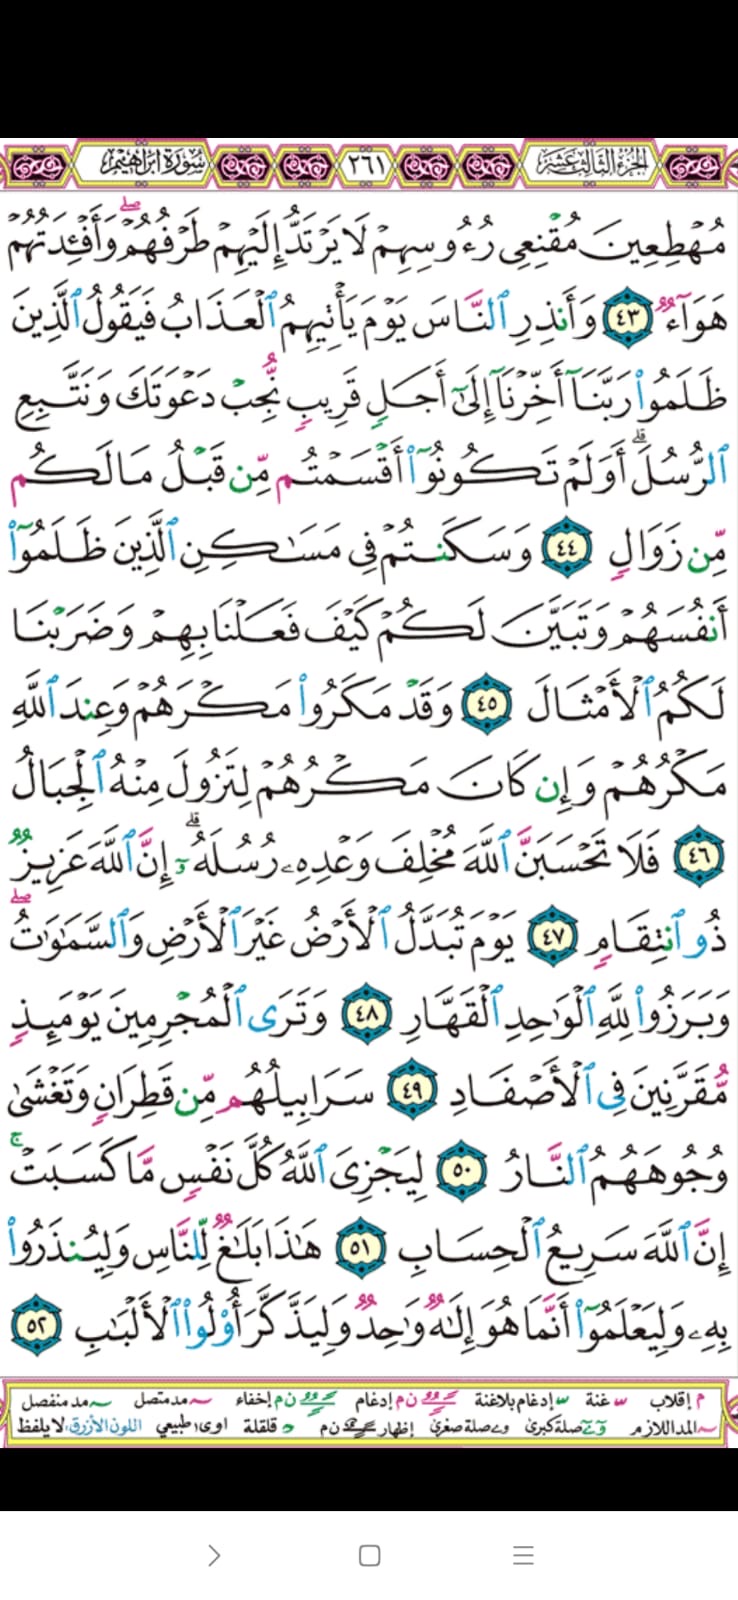 الجزء الثالث عشر ٢٦١ سورة ابراهيم
مُهْطِعِينَ مُقْنِعِى رُءُوسِهِمْ لَا يَرْتَدُّ إِلَيْهِمْ طَرْفُهُمْ ۖ وَأَفْـِٔدَتُهُمْ
هَوَآءٌ ٤٣ وَأَنذِرِ ٱلنَّاسَ يَوْمَ يَأْتِيهِمُ ٱلْعَذَابُ فَيَقُولُ ٱلَّذِينَ
ظَلَمُوا۟ رَبَّنَآ أَخِّرْنَآ إِلَىٰٓ أَجَلٍ قَرِيبٍ نُّجِبْ دَعْوَتَكَ وَنَتَّبِعِ
ٱلرُّسُلَ ۗ أَوَلَمْ تَكُونُوٓا۟ أَقْسَمْتُم مِّن قَبْلُ مَا لَكُم
مِّن زَوَالٍ ٤٤ وَسَكَنتُمْ فِى مَسَـٰكِنِ ٱلَّذِينَ ظَلَمُوٓا۟
أَنفُسَهُمْ وَتَبَيَّنَ لَكُمْ كَيْفَ فَعَلْنَا بِهِمْ وَضَرَبْنَا
لَكُمُ ٱلْأَمْثَالَ ٤٥ وَقَدْ مَكَرُوا۟ مَكْرَهُمْ وَعِندَ ٱللَّهِ
مَكْرُهُمْ وَإِن كَانَ مَكْرُهُمْ لِتَزُولَ مِنْهُ ٱلْجِبَالُ
٤٦ فَلَا تَحْسَبَنَّ ٱللَّهَ مُخْلِفَ وَعْدِهِۦ رُسُلَهُۥٓ ۗ إِنَّ ٱللَّهَ عَزِيزٌ
ذُو ٱنتِقَامٍ ٤٧ يَوْمَ تُبَدَّلُ ٱلْأَرْضُ غَيْرَ ٱلْأَرْضِ وَٱلسَّمَـٰوَٰتُ ۖ
وَبَرَزُوا۟ لِلَّهِ ٱلْوَٰحِدِ ٱلْقَهَّارِ ٤٨ وَتَرَى ٱلْمُجْرِمِينَ يَوْمَئِذٍ
مُّقَرَّنِينَ فِى ٱلْأَصْفَادِ ٤٩ سَرَابِيلُهُم مِّن قَطِرَانٍ وَتَغْشَىٰ
وُجُوهَهُمُ ٱلنَّارُ ٥٠ لِيَجْزِىَ ٱللَّهُ كُلَّ نَفْسٍ مَّا كَسَبَتْ ۚ
إِنَّ ٱللَّهَ سَرِيعُ ٱلْحِسَابِ ٥١ هَـٰذَا بَلَـٰغٌ لِّلنَّاسِ وَلِيُنذَرُوا۟
بِهِۦ وَلِيَعْلَمُوٓا۟ أَنَّمَا هُوَ إِلَـٰهٌ وَٰحِدٌ وَلِيَذَّكَّرَ أُو۟لُوا۟ ٱلْأَلْبَـٰبِ ٥٢
م إقلاب غنة إدغام بلاغنة ن م إدغام ن م إخفاء مد متصل مد منفصل
المد اللازم صلة كبرى صلة صغرى إظهار ن م قلقلة اوى طبيعي اللون الأزرق، لا يلفظ